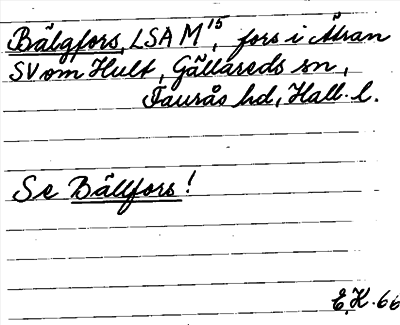 Bälgfors, LSA M¹⁵, fors i Ätran
SV om Hult, Gällareds sn,
Faurås hd, Hall. l.
Se Bällfors!
E.H. 66